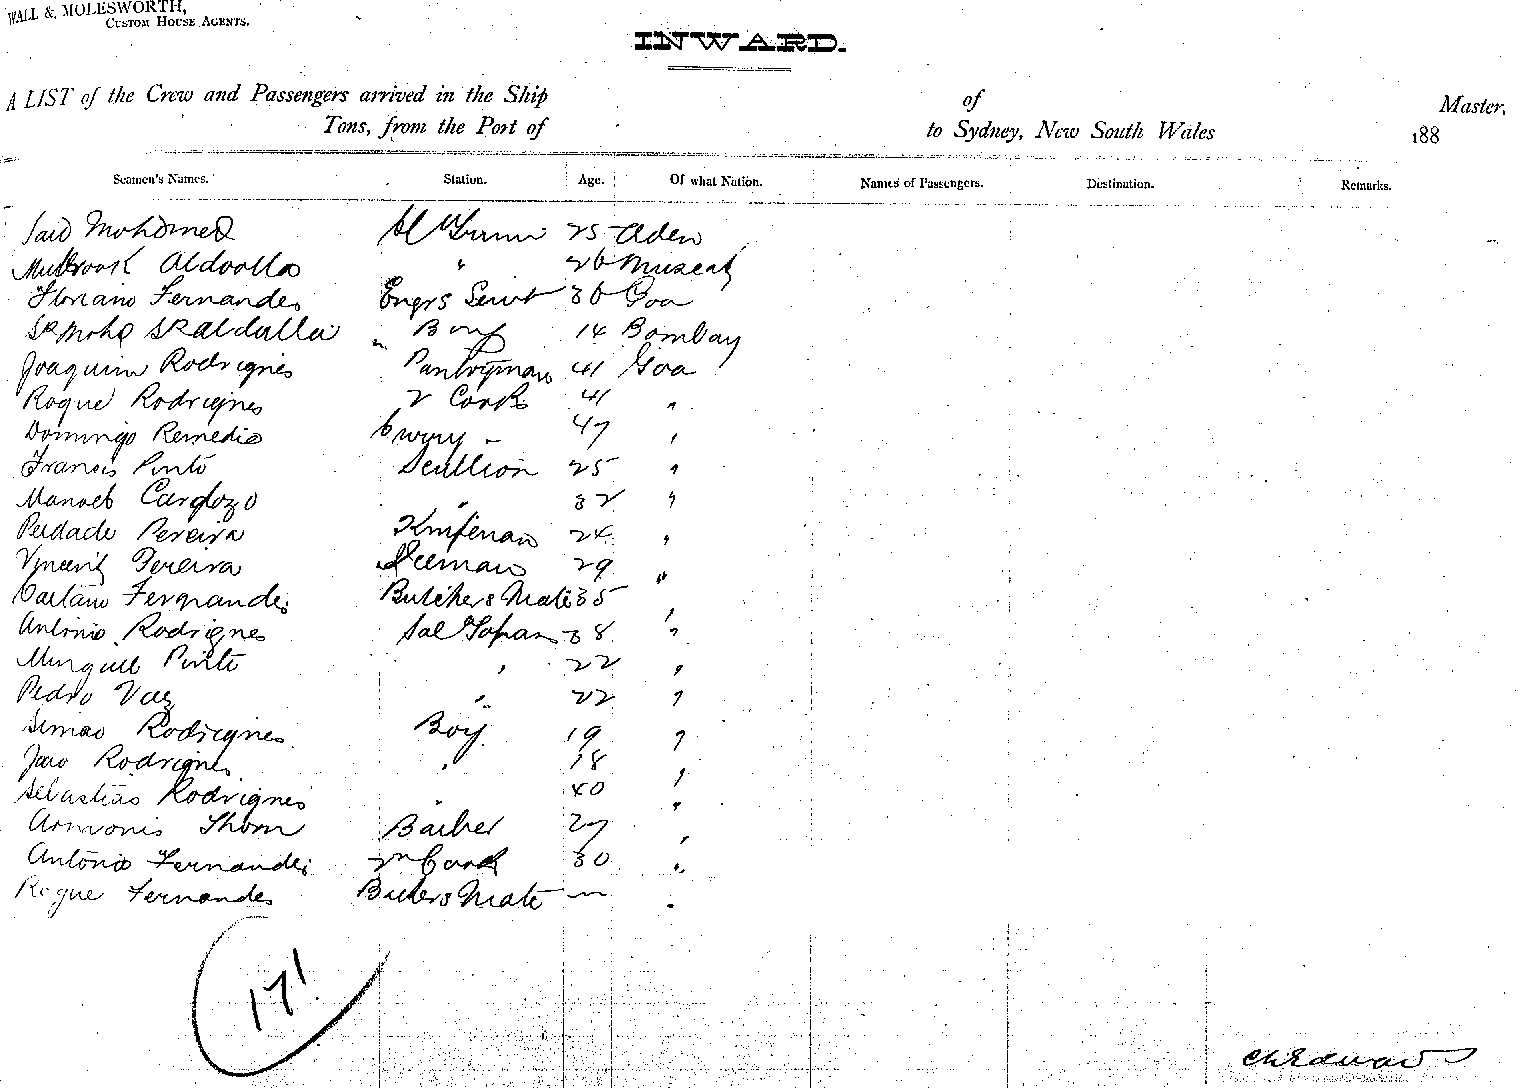 WALL & MOLESWORTH,
CUSTOM HOUSE AGENTS.
INWARD.
A LIST of the Crew and Passengers arrived in the Ship of Master,
Tons, from the Port of to Sydney, New South Wales 188
Seamen's Names. Station. Age. Of what Nation. Names of Passengers. Destination. Remarks.
Said Mohamed 25 Aden
" 26 Muscat
Floriano Fernandes Engrs Servt 36 Goa
" Boy 14 Bombay
Joaquim Rodrigues Pantryman 41 Goa
Roque Rodrigues 2 Cook 41 "
Domingo Remedio 47 "
Francis Pinto Scullion 25 "
Manoel Cardozo " 32 "
Pereira Knifeman 24 "
Vincent Pereira 29 "
Caetano Fernandes Butchers Mate 35 "
Antonio Rodrigues 38 "
Pinto " 22 "
Pedro Vaz " 22 "
Simao Rodrigues Boy 19 "
Joao Rodrigues " 18 "
Sebastiao Rodrigues " 40 "
Barber 27 "
Antonio Fernandes Cook 30 "
Roque Fernandes Bakers Mate — "
171